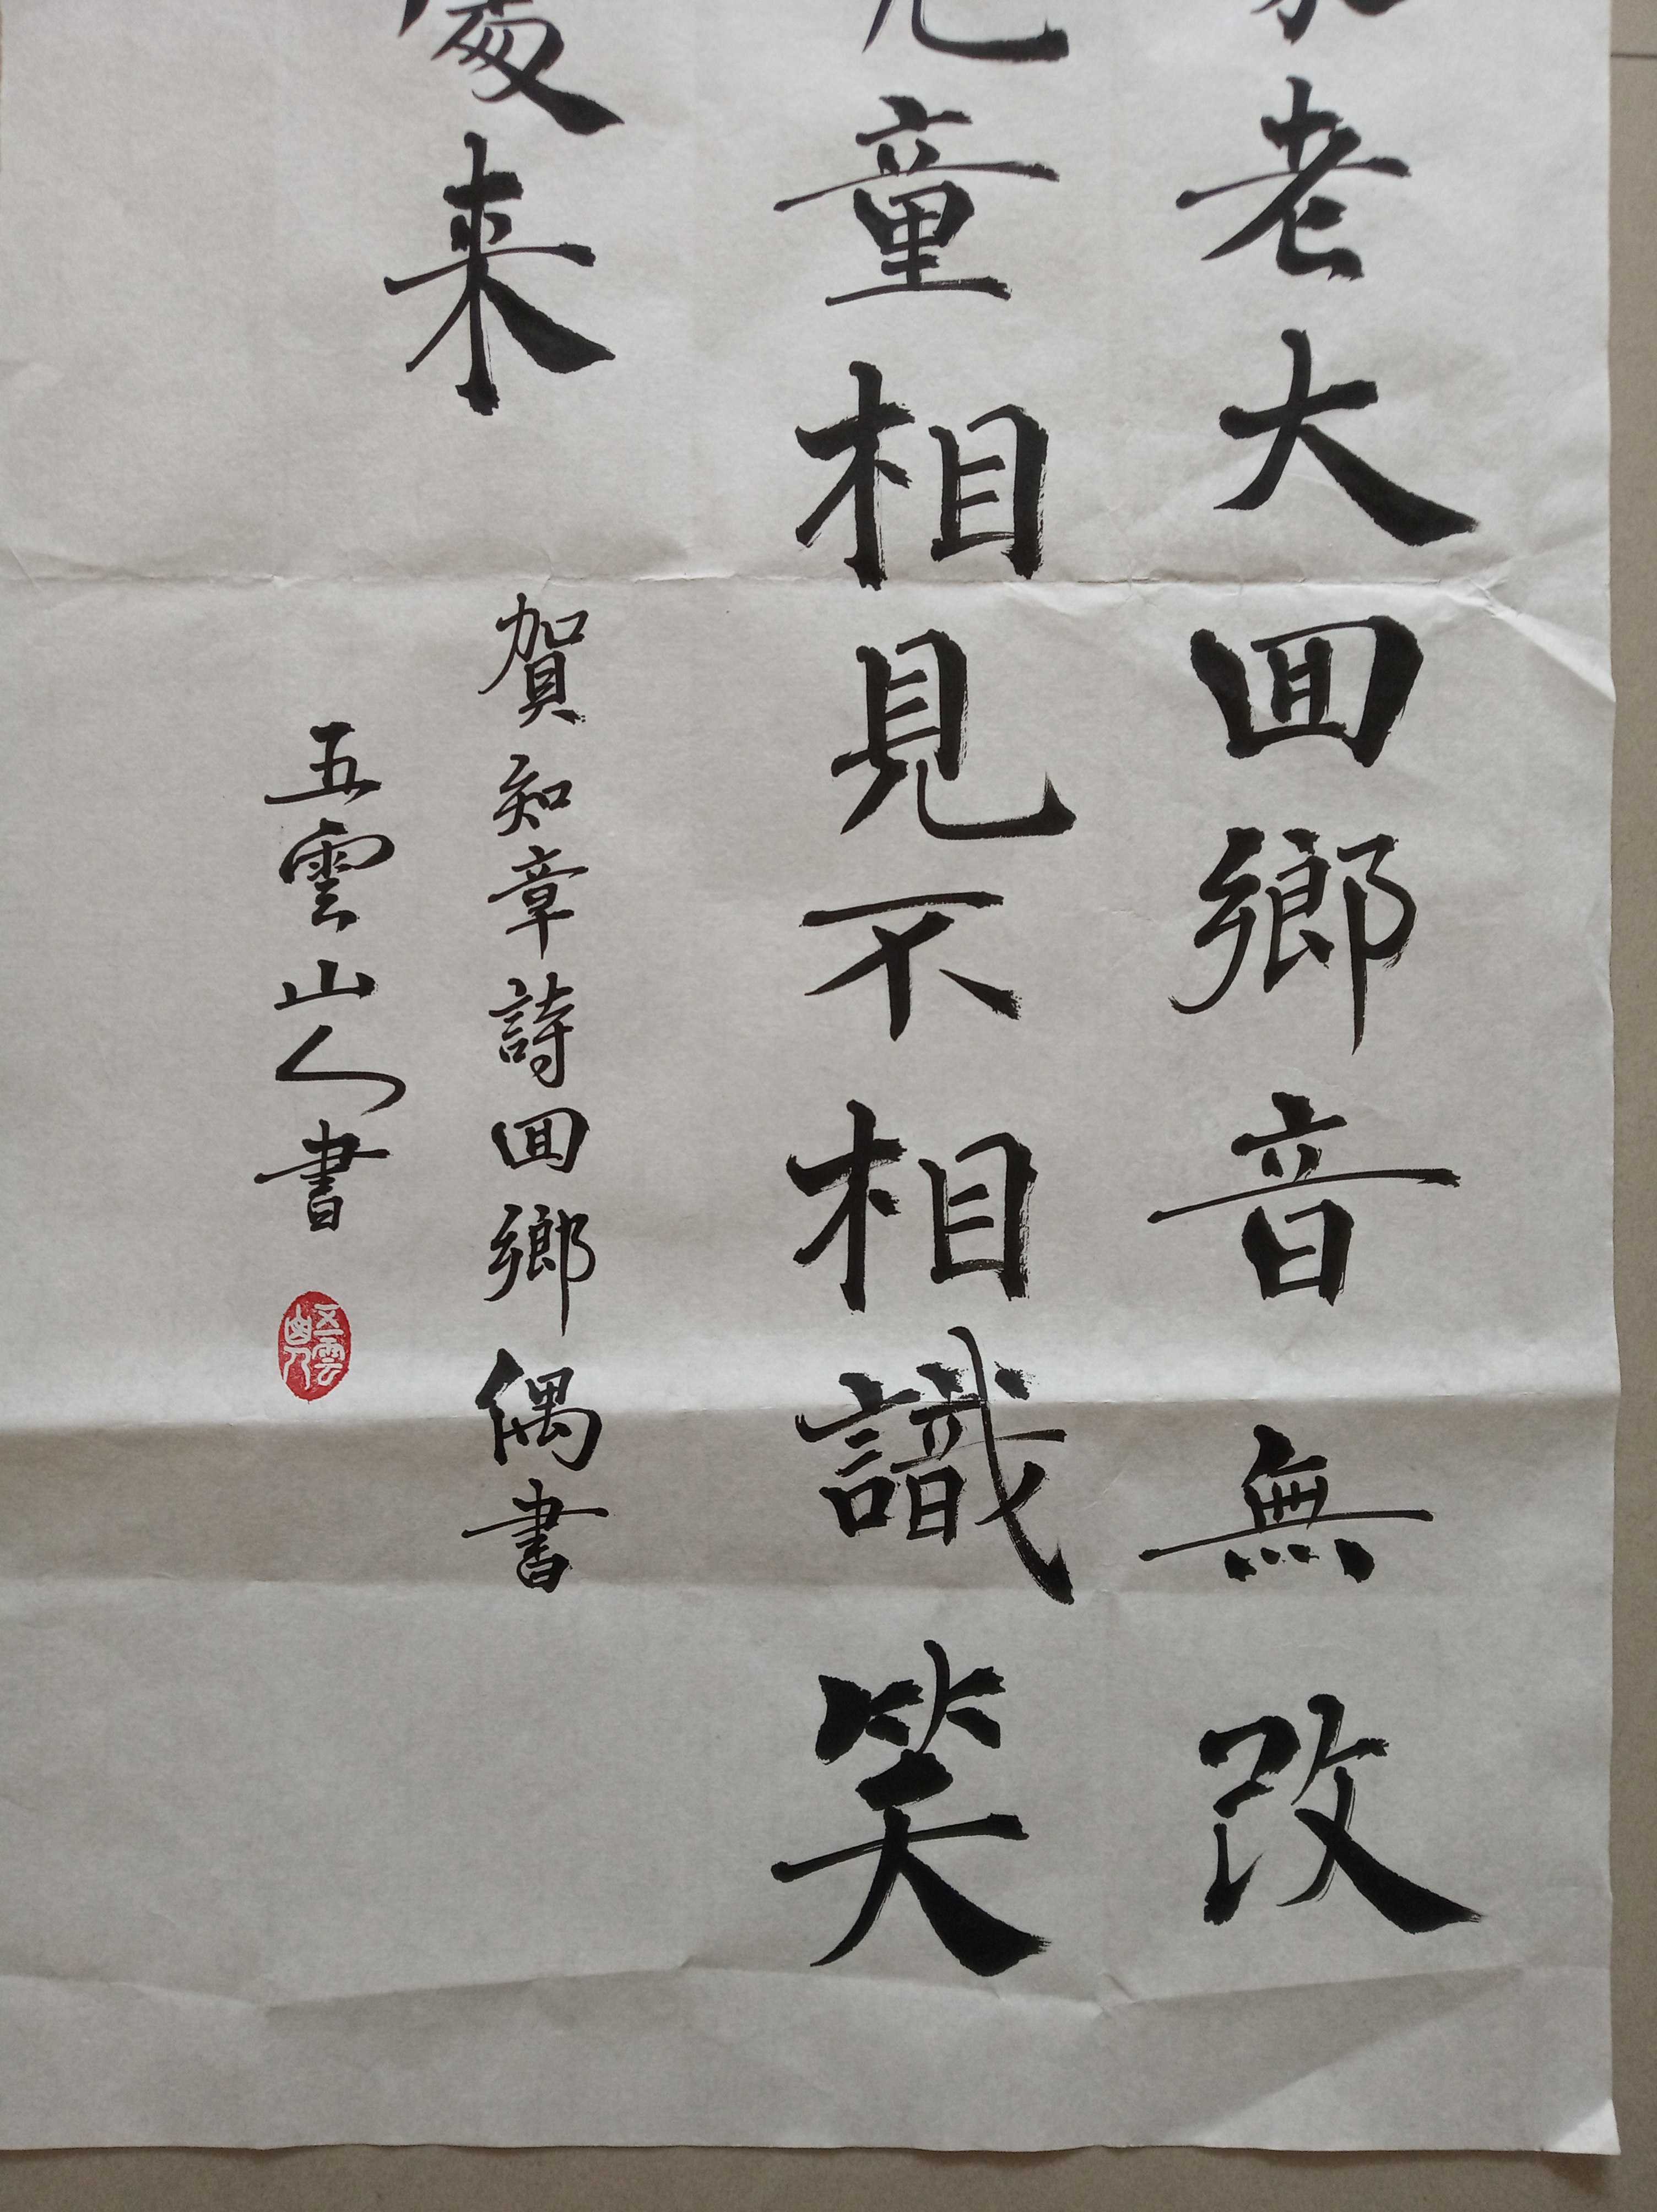 老大囬鄉音無改
童相見不相識笑
来
賀知章詩囬鄉偶書
五雲山人書
五雲山人